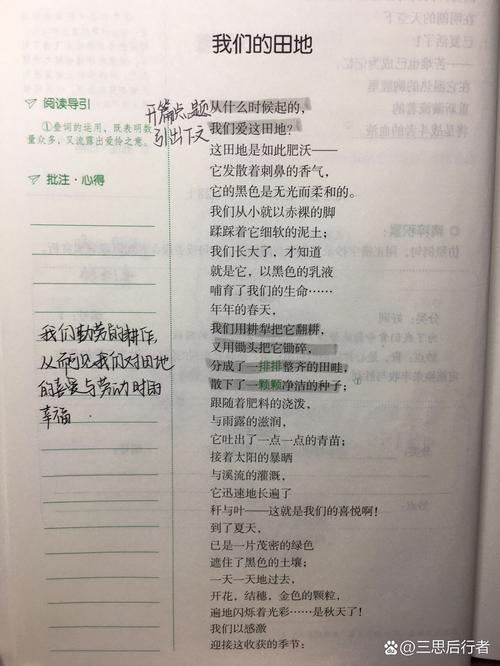 我们的田地
阅读导引
①叠词的运用，既表明数
量众多，又流露出爱怜之意。
批注·心得
开篇点题
引出下文
我们勤劳的耕作，
从而可见我们对田地
的喜爱与劳动时的
幸福。
从什么时候起的，
我们爱这田地？
这田地是如此肥沃——
它发散着刺鼻的香气，
它的黑色是无光而柔和的。
我们从小就以赤裸的脚
蹂踩着它细软的泥土；
我们长大了，才知道
就是它，以黑色的乳液
哺育了我们的生命……
年年的春天，
我们用耕犁把它翻耕，
又用锄头把它锄碎，
分成了一排排整齐的田畦，
散下了一颗颗净洁的种子；①
跟随着肥料的浇泼，
与雨露的滋润，
它吐出了一点一点的青苗；
接着太阳的暴晒
与溪流的灌溉，
它迅速地长遍了
秆与叶——这就是我们的喜悦啊！
到了夏天，
已是一片茂密的绿色
遮住了黑色的土壤；
一天一天地过去，
开花，结穗，金色的颗粒，
遍地闪烁着光彩……是秋天了！
我们以感激
迎接这收获的季节：
@三思后行者